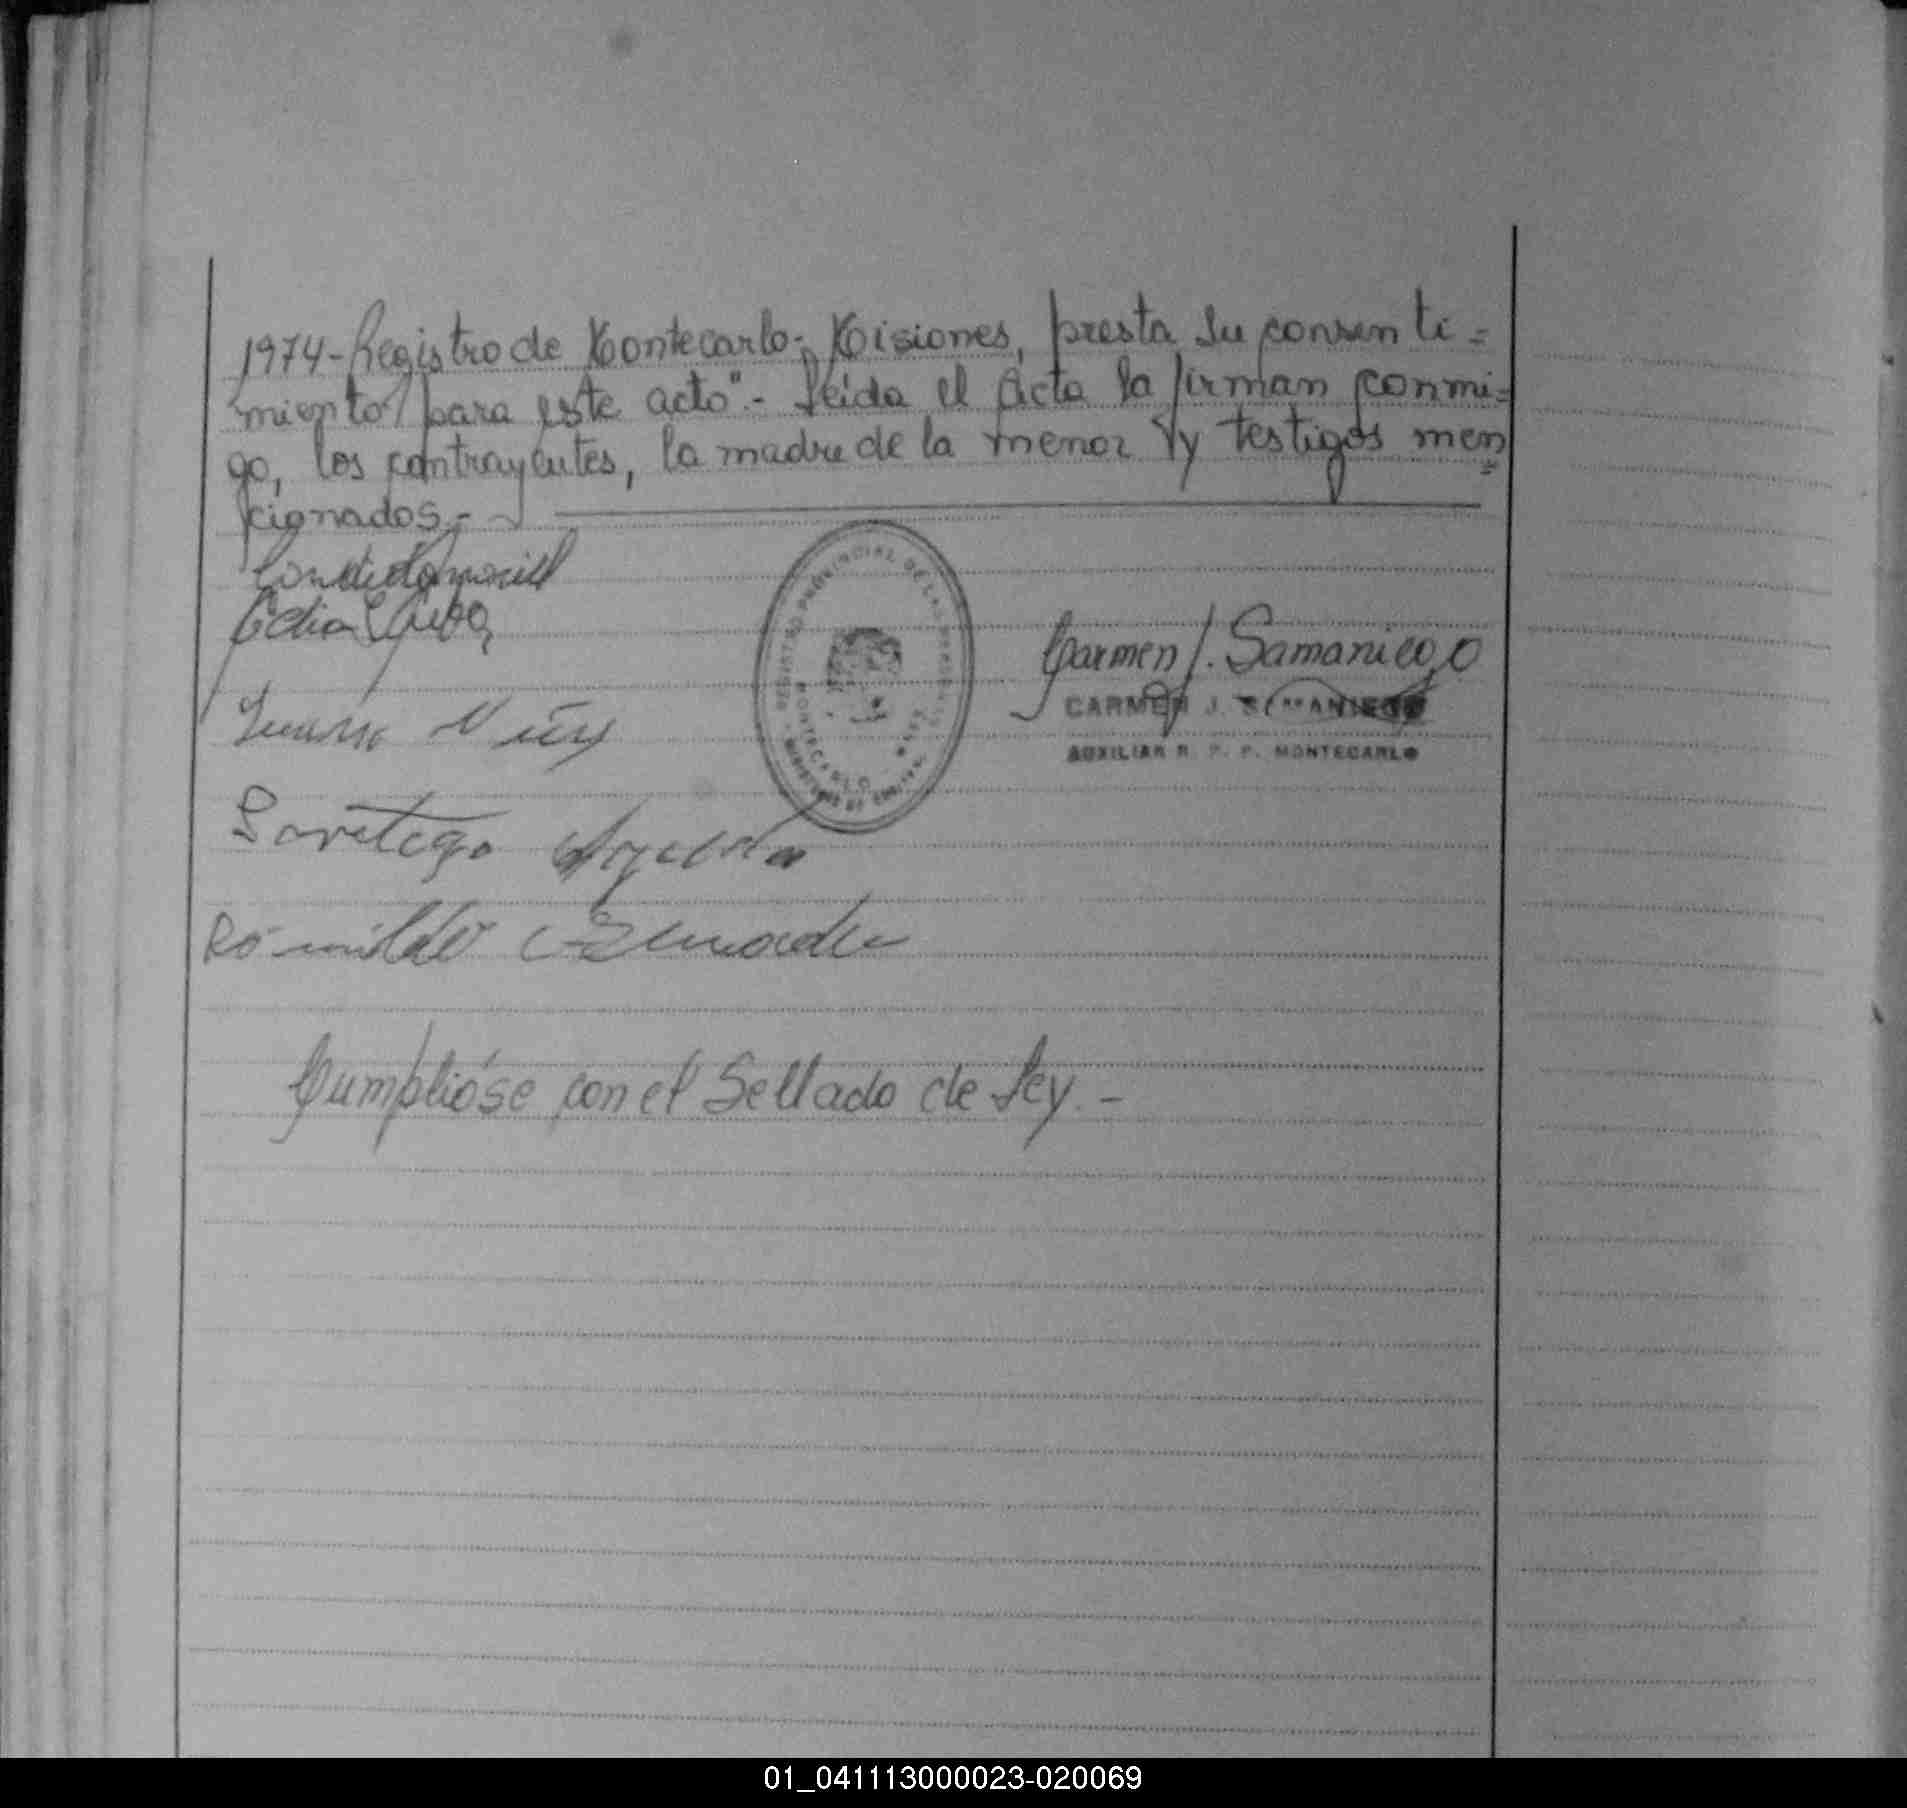 1974-Registro de Montecarlo-Misiones, presta su consenti=
miento para este acto".- Leída el Acta la firman conmi=
go, los contrayentes, la madre de la menor y testigos men=
cionados.-
REGISTRO PROVINCIAL DE LAS PERSONAS
MONTECARLO
Carmen J. Samaniego
CARMEN J. SAMANIEGO
AUXILIAR R. P. P. MONTECARLO
Juana
Romildo
Cumplióse con el Sellado de Ley.-
01_041113000023-020069